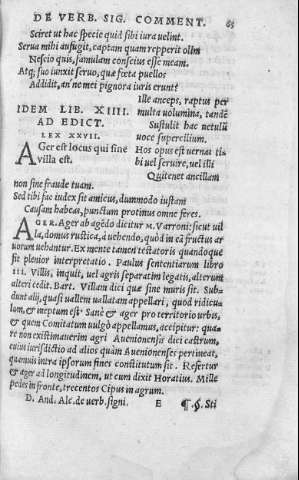 DE VERB. SIG. COMMENT. 65
Sciret ut hac specie quid sibi iura uelint.
Serua mihi aufugit, captam quam repperit olim
Nescio quis, famulam conscius esse meam.
Atq; suo iunxit seruo, quæ fœta puellos
Addidit, an' ne mei pignora iuris erunt?
Ille anceps, raptus per
IDEM LIB. XIIII. multa uolumina, tandẽ
AD EDICT. Sustulit hac netulũ
LEX XXVII. uoce supercilium.
AGer est locus qui sine Hos opus est uernas tibi
villa est. bi uel seruire, uel illi
Qui tenet ancillam
non sine fraude tuam.
Sed tibi sic iudex sit amicus, dummodo iustam
Causam habeas, punctum protinus omne feres.
AGER. Ager ab agẽdo dicitur M. Varroni: sicut uil
la, domus rustica, à uehendo, quòd in eã fructus ar
uorum uehantur. Ex mente tamen testatoris quandoque
fit plenior interpretatio. Paulus sententiarum libro
III. Villis, inquit, uel agris separatim legatis, alterum
alteri cedit. Bart. Villam dici quæ sine muris sit. Sub
dunt alij, quasi uallem uallatam appellari, quod ridicu
lom, & ineptum est. Sanè & ager pro territorio urbis,
& quem Comitatum uulgò appellamus, accipitur: qua
re non existimauerim agri Auenionensis dici castrum,
cuius iurisdictio ad alios quàm Auenionenses pertineat,
quamuis intra ipsorum fines constitutum sit. Refertur
& ager ad longitudinem, ut cum dixit Horatius. Mille
pedes in fronte, trecentos Cipus in agrum.
D. And. Alc. de uerb. signi. E ¶.§. Sti